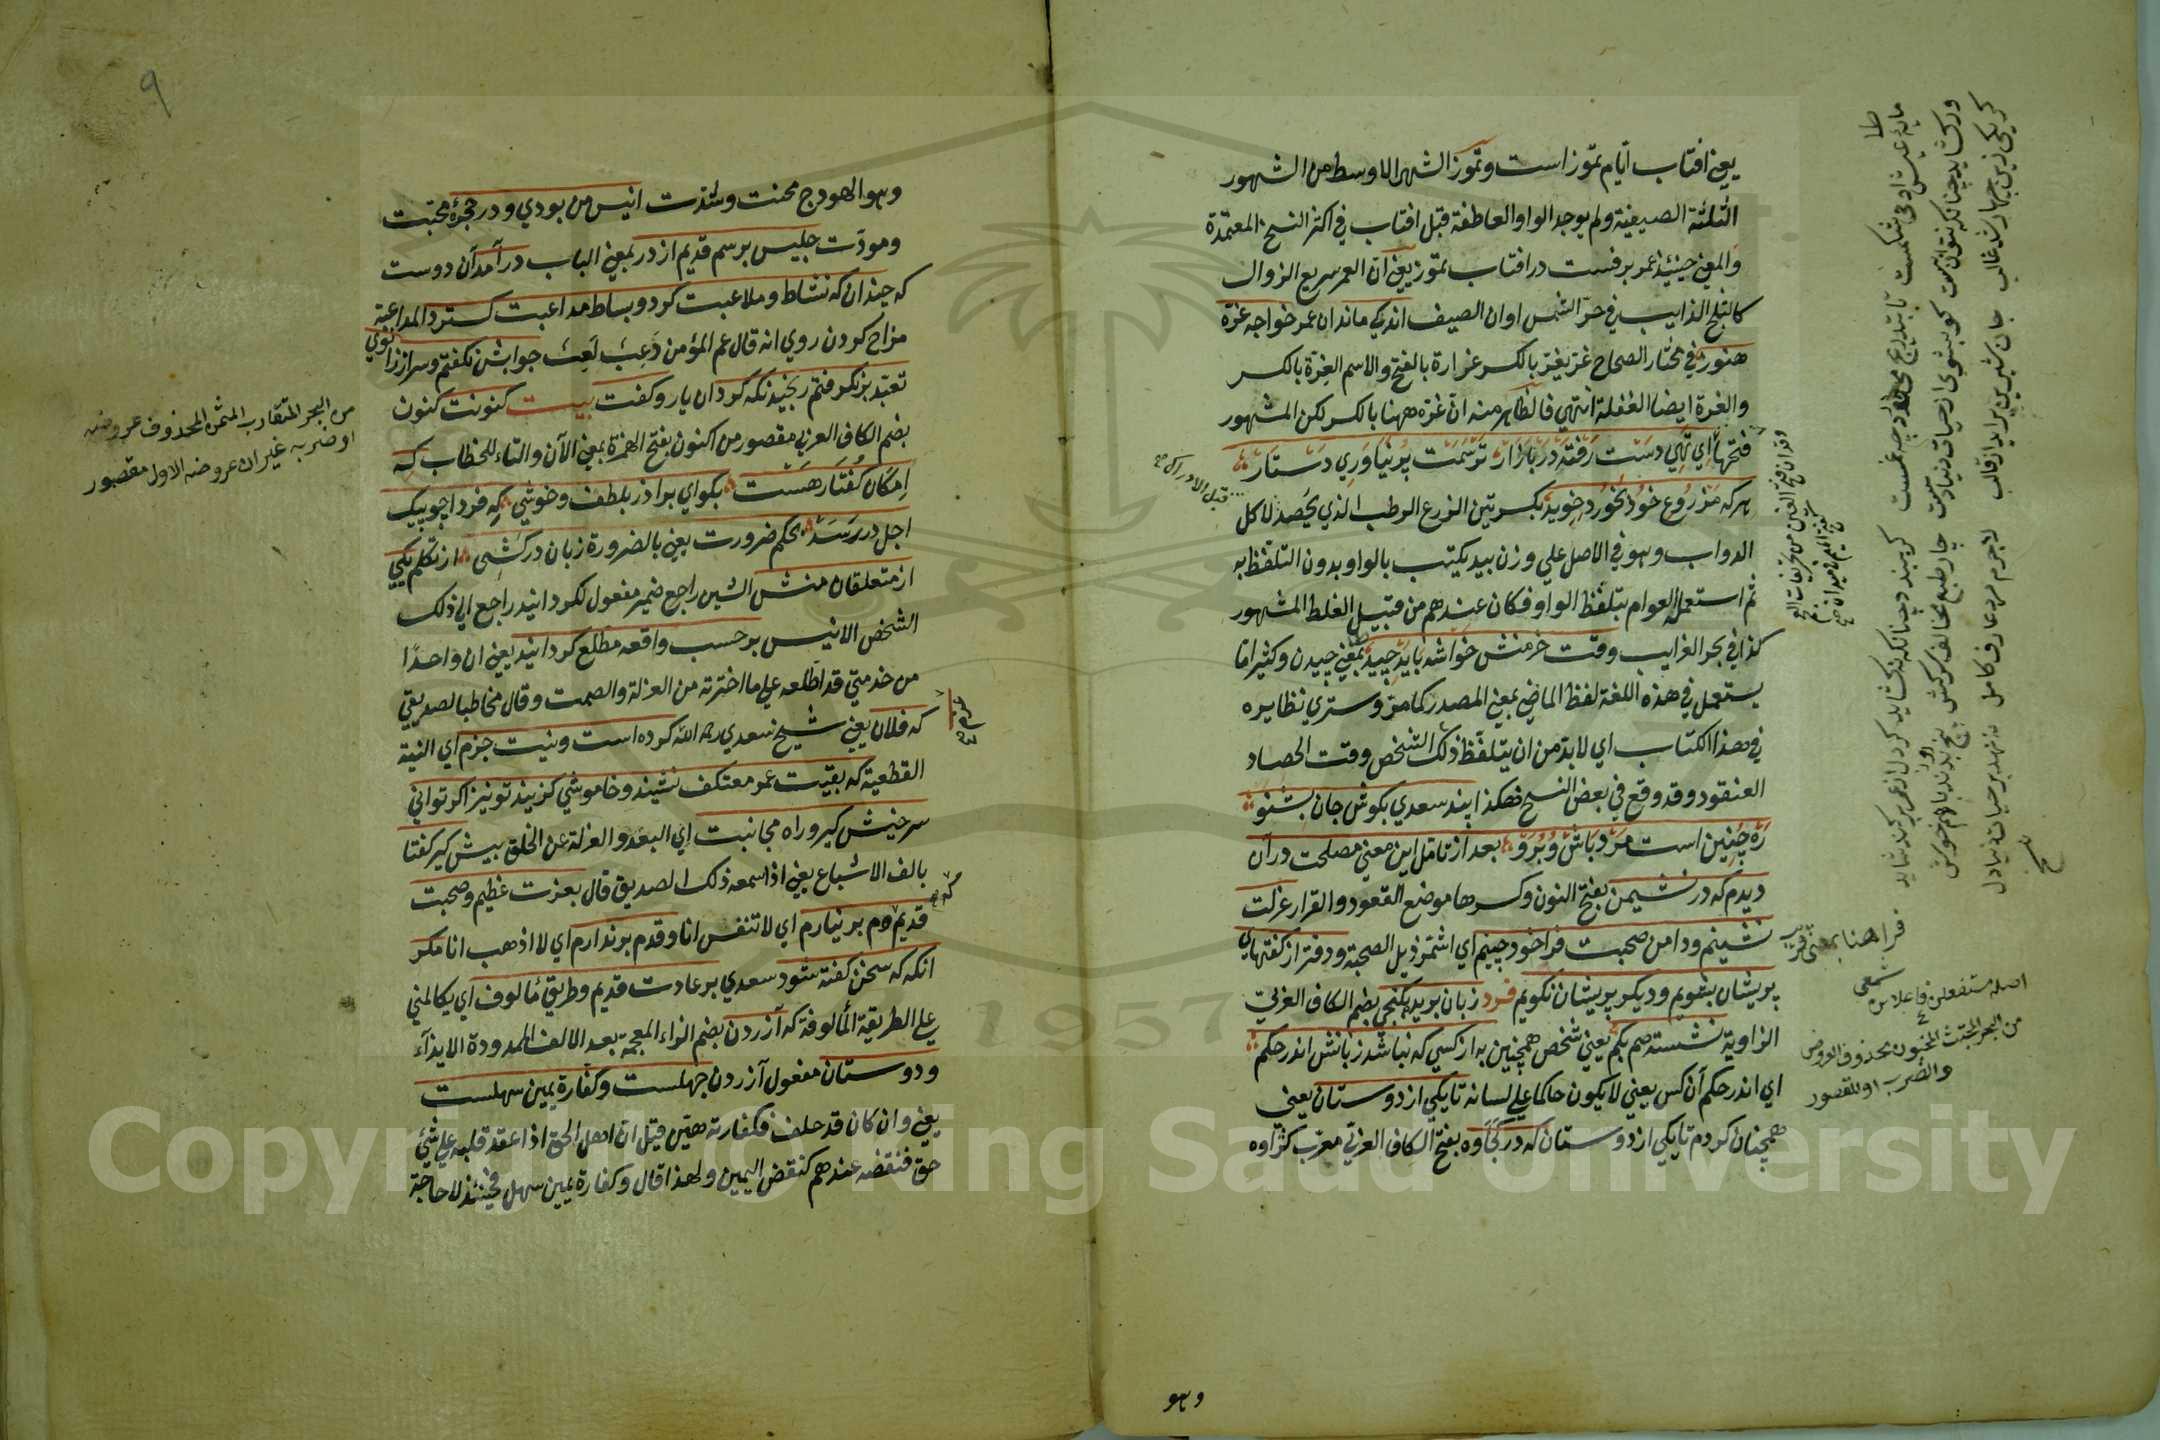 يعني افتاب ايام تموز است وتموز الشهر الاوسط من الشهور
الثلثة الصيفية ولم يوجد الواو العاطفة قبل افتاب في اكثر النسخ المعتمدة
والمعني حينئذ عمر برفست در افتاب تموز يعني ان العمر سريع الزوال
كالثلج الذايب في حر الشمس اوان الصيف اندكي ماند ان عمر خواجه غره
هنوز في مختار الصحاح غر يغر بالكسر غرارة بالفتح والاسم الغرة بالكسر
والغرة ايضا الغفلة انتهي فالظاهر منه ان غره ههنا بالكسر لكن المشهور
فتحها اي تهي دست رفته در بازار ترسمت پر نياوري دستار
هركه مزروع خود بخورد خويد بكسرتين الزرع الرطب الذي يحصد لاكل
الدواب وهو في الاصل علي وزن بيد يكتب بالواو بدون التلفظ به
ثم استعمل العوام بتلفظ الواو فكان عندهم من قبيل الغلط المشهور
كذا في بحر الغرايب وقت خرمنش خوشه بايد چيد بمعني چيدن وكثيرا ما
يستعمل في هذه اللغة لفظ الماضي بمعني المصدر كما مر وستري نظايره
في هذا الكتاب اي لا بد من ان يتلفظ ذلك الشخص وقت الحصاد
العنقود وقد وقع في بعض النسخ هكذا پند سعدي بكوش جان بشنو
ره چنين است مرد باش وبرو بعد از تامل اين معني مصلحت در آن
ديدم كه در نشيمن بفتح النون وكسرها موضع القعود والقرار عزلت
نشينم ودامن صحبت فراخود چينم اي اشتمر ذيل الصحبة ودفتر از كفتهاي
پريشان بشويم وديكر پريشان نكويم فرد زبان بريده بكنجي بضم الكاف العربي
الزاوية نشسته صم بكم يعني شخص همچنين به از كسي كه نباشد زبانش اندر حكم
اي اندر حكم آن كس يعني لا يكون حاكما علي لسانه تا يكي از دوستان يعني
همچنان كردم تا يكي از دوستان كه در كجاوه بفتح الكاف العربي معرب كژاوه
وهو
فرا هنا بمعني قرب
اصله مستفعلن فاعلاتن
من البحر المجتث المخبون محذوف العروض
والضرب او المقصور
٩
وهو الهودج محنت وشدت انيس من بودي ودر حجرهٔ محبت
ومودت جليس برسم قديم از در بمعني الباب در آمد آن دوست
كه چندان كه نشاط وملاعبت كرد وبساط مداعبت كسترد المداعبة
مزاح كردن روي انه قال عم المؤمن دعب لعب جوابش نكفتم وسر از زانوي
تعبد بر نكرفتم رنجيد نكه كرد ان يار وكفت بيت كنونت كنون
بضم الكاف العربي مقصور من اكنون بفتح الهمزة بمعني الآن والتاء للخطاب كه
امكان كفتار هست بكو اي برادر بلطف وخوشي كه فردا چو پيك
اجل در رسد بحكم ضرورت يعني بالضرورة زبان در كشي از تكلم يكي
از متعلقان منش الشين راجع ضمير مفعول لكردانيد راجع الي ذلك
الشخص الانيس بر حسب واقعه مطلع كردانيد يعني ان واحدا
من خدمتي قد اطلعه علي ما اخترته من العزلة والصمت وقال مخاطبا لصديقي
كه فلان يعني شيخ سعدي ره الله كرده است ونيت جزم اي النية
القطعية كه بقيت عمر معتكف نشيند وخاموشي كزيند تو نيز اكر تواني
سر خيش كير وراه مجانبت اي البعد والعزلة عن الخلق پيش كير كفتا
بالف الاشباع يعني اذا سمعه ذلك الصديق قال بعزت عظيم وصحبت
قديم دم بر نيارم اي لا تنفس انا وقدم بر ندارم اي لا اذهب انا مكر
انكه كه سخن كفته شود سعدي بر عادت قديم وطريق مألوف اي يكالمني
علي الطريقة المألوفة كه آزردن بضم الزاء المعجمة بعد الالف الممدودة الايذآء
ودوستان مفعول آزردن جهلست وكفارة يمين سهلست
يعني وان كان قد حلف فكفارته هين قيل ان اهل الحق اذا عقد قلبه علي شيئ
حق فنقضه عندهم كنقض اليمين ولهذا قال وكفارة يمين سهل فحينئذ لا حاجة
من البحر المتقارب المثمن المحذوف عروضه
او ضربه غير ان عروضه الاول مقصور
Copyright © King Saud University
1957